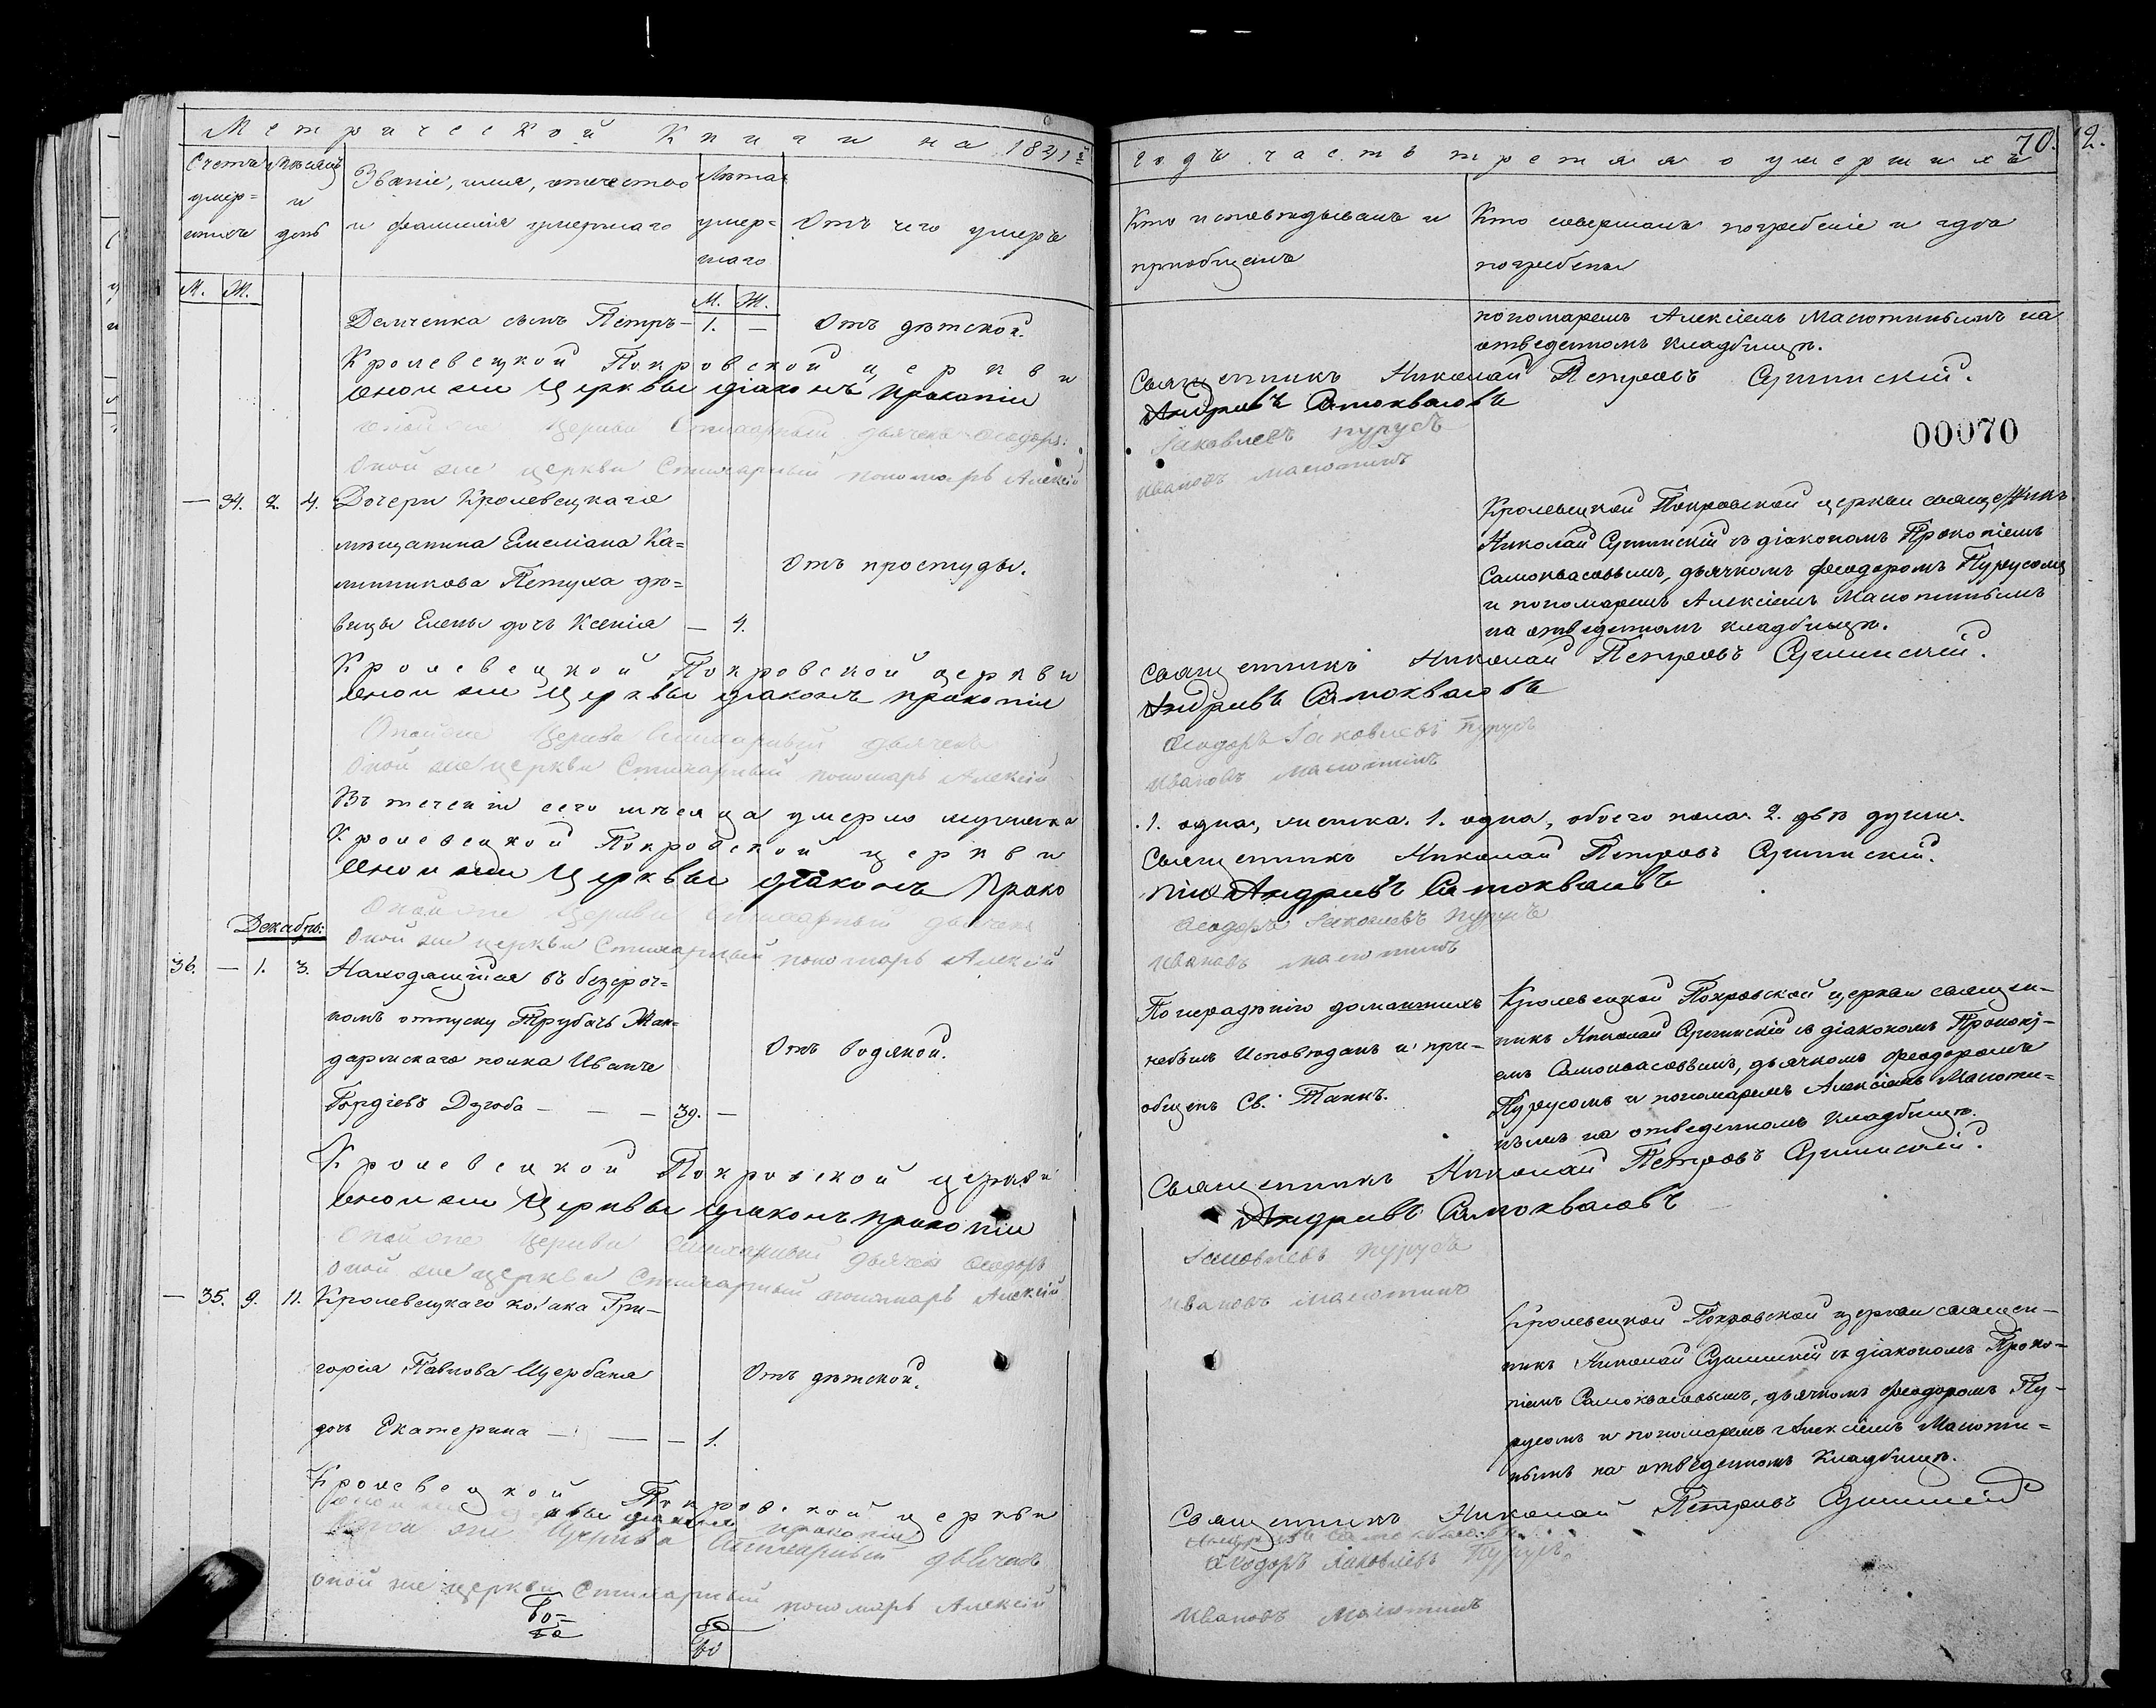 Метрической Книги на 1841й
Счетъ умер=шихъ
Мѣсяцъ и день
Званіе, имя, отчество и фамилія умершаго
Лѣта умер=шаго
Отъ чего умеръ
М. Ж.
М. Ж.
Демченка сынъ Петръ — 1. — Отъ дѣтской.
Кролевецкой Покровской церкви
оной же Церквы діаконъ Прокопій
Оной же Церкви Стихарный дьячекъ Ѳеодоръ
Оной же церкви Стихарный пономарь Алексій
— 34. 2. 4. Дочери Кролевецкаго
мѣщанина Емеліана Ка=
линникова Петуха дѣ=
Отъ простуды.
вицы Елены дочь Ксенія — 4.
Кролевецкой Покровской церкви
оной же Церквы діаконъ Прокопій
Оной же Церкви Стихарный дьячекъ
Оной же церкви Стихарный пономарь Алексій
Въ теченіи сего мѣсяца умерло мужеска
Кролевецкой Покровской церкви
оной же Церквы діаконъ Проко
Оной же Церкви Стихарный дьячекъ
Декабрь:
Оной же церкви Стихарный пономарь Алексій
36. — 1. 3. Находящійся въ безсроч=
номъ отпуску Трубачъ Жан=
дармскаго полка Иванъ
Отъ водяной.
Гордіевъ Дзюба — — — 39. —
Кролевецкой Покровской церкви
оной же Церквы діаконъ Прокопій
Оной же Церкви Стихарный дьячекъ Ѳеодоръ
Оной же церкви Стихарный пономарь Алексій
— 35. 9. 11. Кролевецкаго козака Гри—
горія Павлова Щербака
Отъ дѣтской.
дочь Екатерина — — — 1.
Кролевецкой Покровской церкви
оной же Церквы діаконъ Прокопій
Оной же Церкви Стихарный дьячекъ
Оной же церкви Стихарный пономарь Алексій
70.
2.
годъ часть третья о умершихъ
Кто исповѣдывалъ и пріобщалъ
Кто совершалъ погребеніе и гдѣ погребены
пономаремъ Алексіемъ Малютинымъ на
отведенномъ кладбищѣ.
Священникъ Николай Петровъ
Андріевъ Самоквасовъ
00070
Іаковлевъ Пурусъ
Ивановъ Малютинъ
Кролевецкой Покровской церкви священникъ
Николай съ діакономъ Прокопіемъ
Самоквасовымъ, дьячкомъ Ѳеодоромъ Пурусомъ
и пономаремъ Алексіемъ Малютинымъ
на отведенномъ кладбищѣ.
Священникъ Николай Петровъ
Андріевъ Самоквасовъ
Ѳеодоръ Іаковлевъ Пурусъ
Ивановъ Малютинъ
1. одна, женска. 1. одна, обоего пола. 2. двѣ души.
Священникъ Николай Петровъ
пій Андріевъ Самоквасовъ
Ѳеодоръ Іаковлевъ Пурусъ
Ивановъ Малютинъ
По нерадѣнію домашнихъ
небылъ Исповѣданъ и при—
общенъ Св. Таинъ.
Кролевецкой Покровской церкви священ—
никъ Николай съ діакономъ Прокопі—
емъ Самоквасовымъ, дьячкомъ Ѳеодоромъ
Пурусомъ и пономаремъ Алексіемъ Малюти—
нымъ на отведенномъ кладбищѣ.
Священникъ Николай Петровъ
Андріевъ Самоквасовъ
Іаковлевъ Пурусъ
Ивановъ Малютинъ
Кролевецкой Покровской церкви священ—
никъ Николай съ діакономъ Проко—
піемъ Самоквасовымъ, дьячкомъ Ѳеодоромъ Пу—
русомъ и пономаремъ Алексіемъ Малюти=
нымъ на отведенномъ Кладбищѣ.
Священникъ Николай Петровъ
Андріевъ Самоквасовъ
Ѳеодоръ Іаковлевъ Пурусъ
Ивановъ Малютинъ